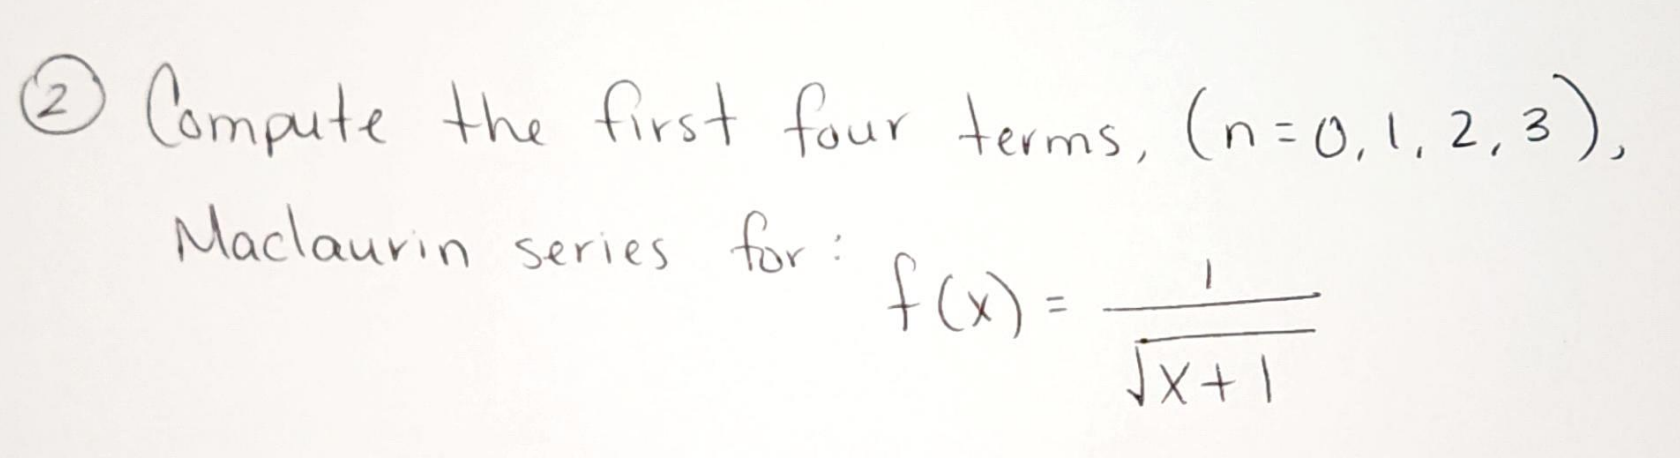 ② Compute the first four terms, (n=0,1,2,3),
Maclaurin series for: f(x) = 1/√(x+1)